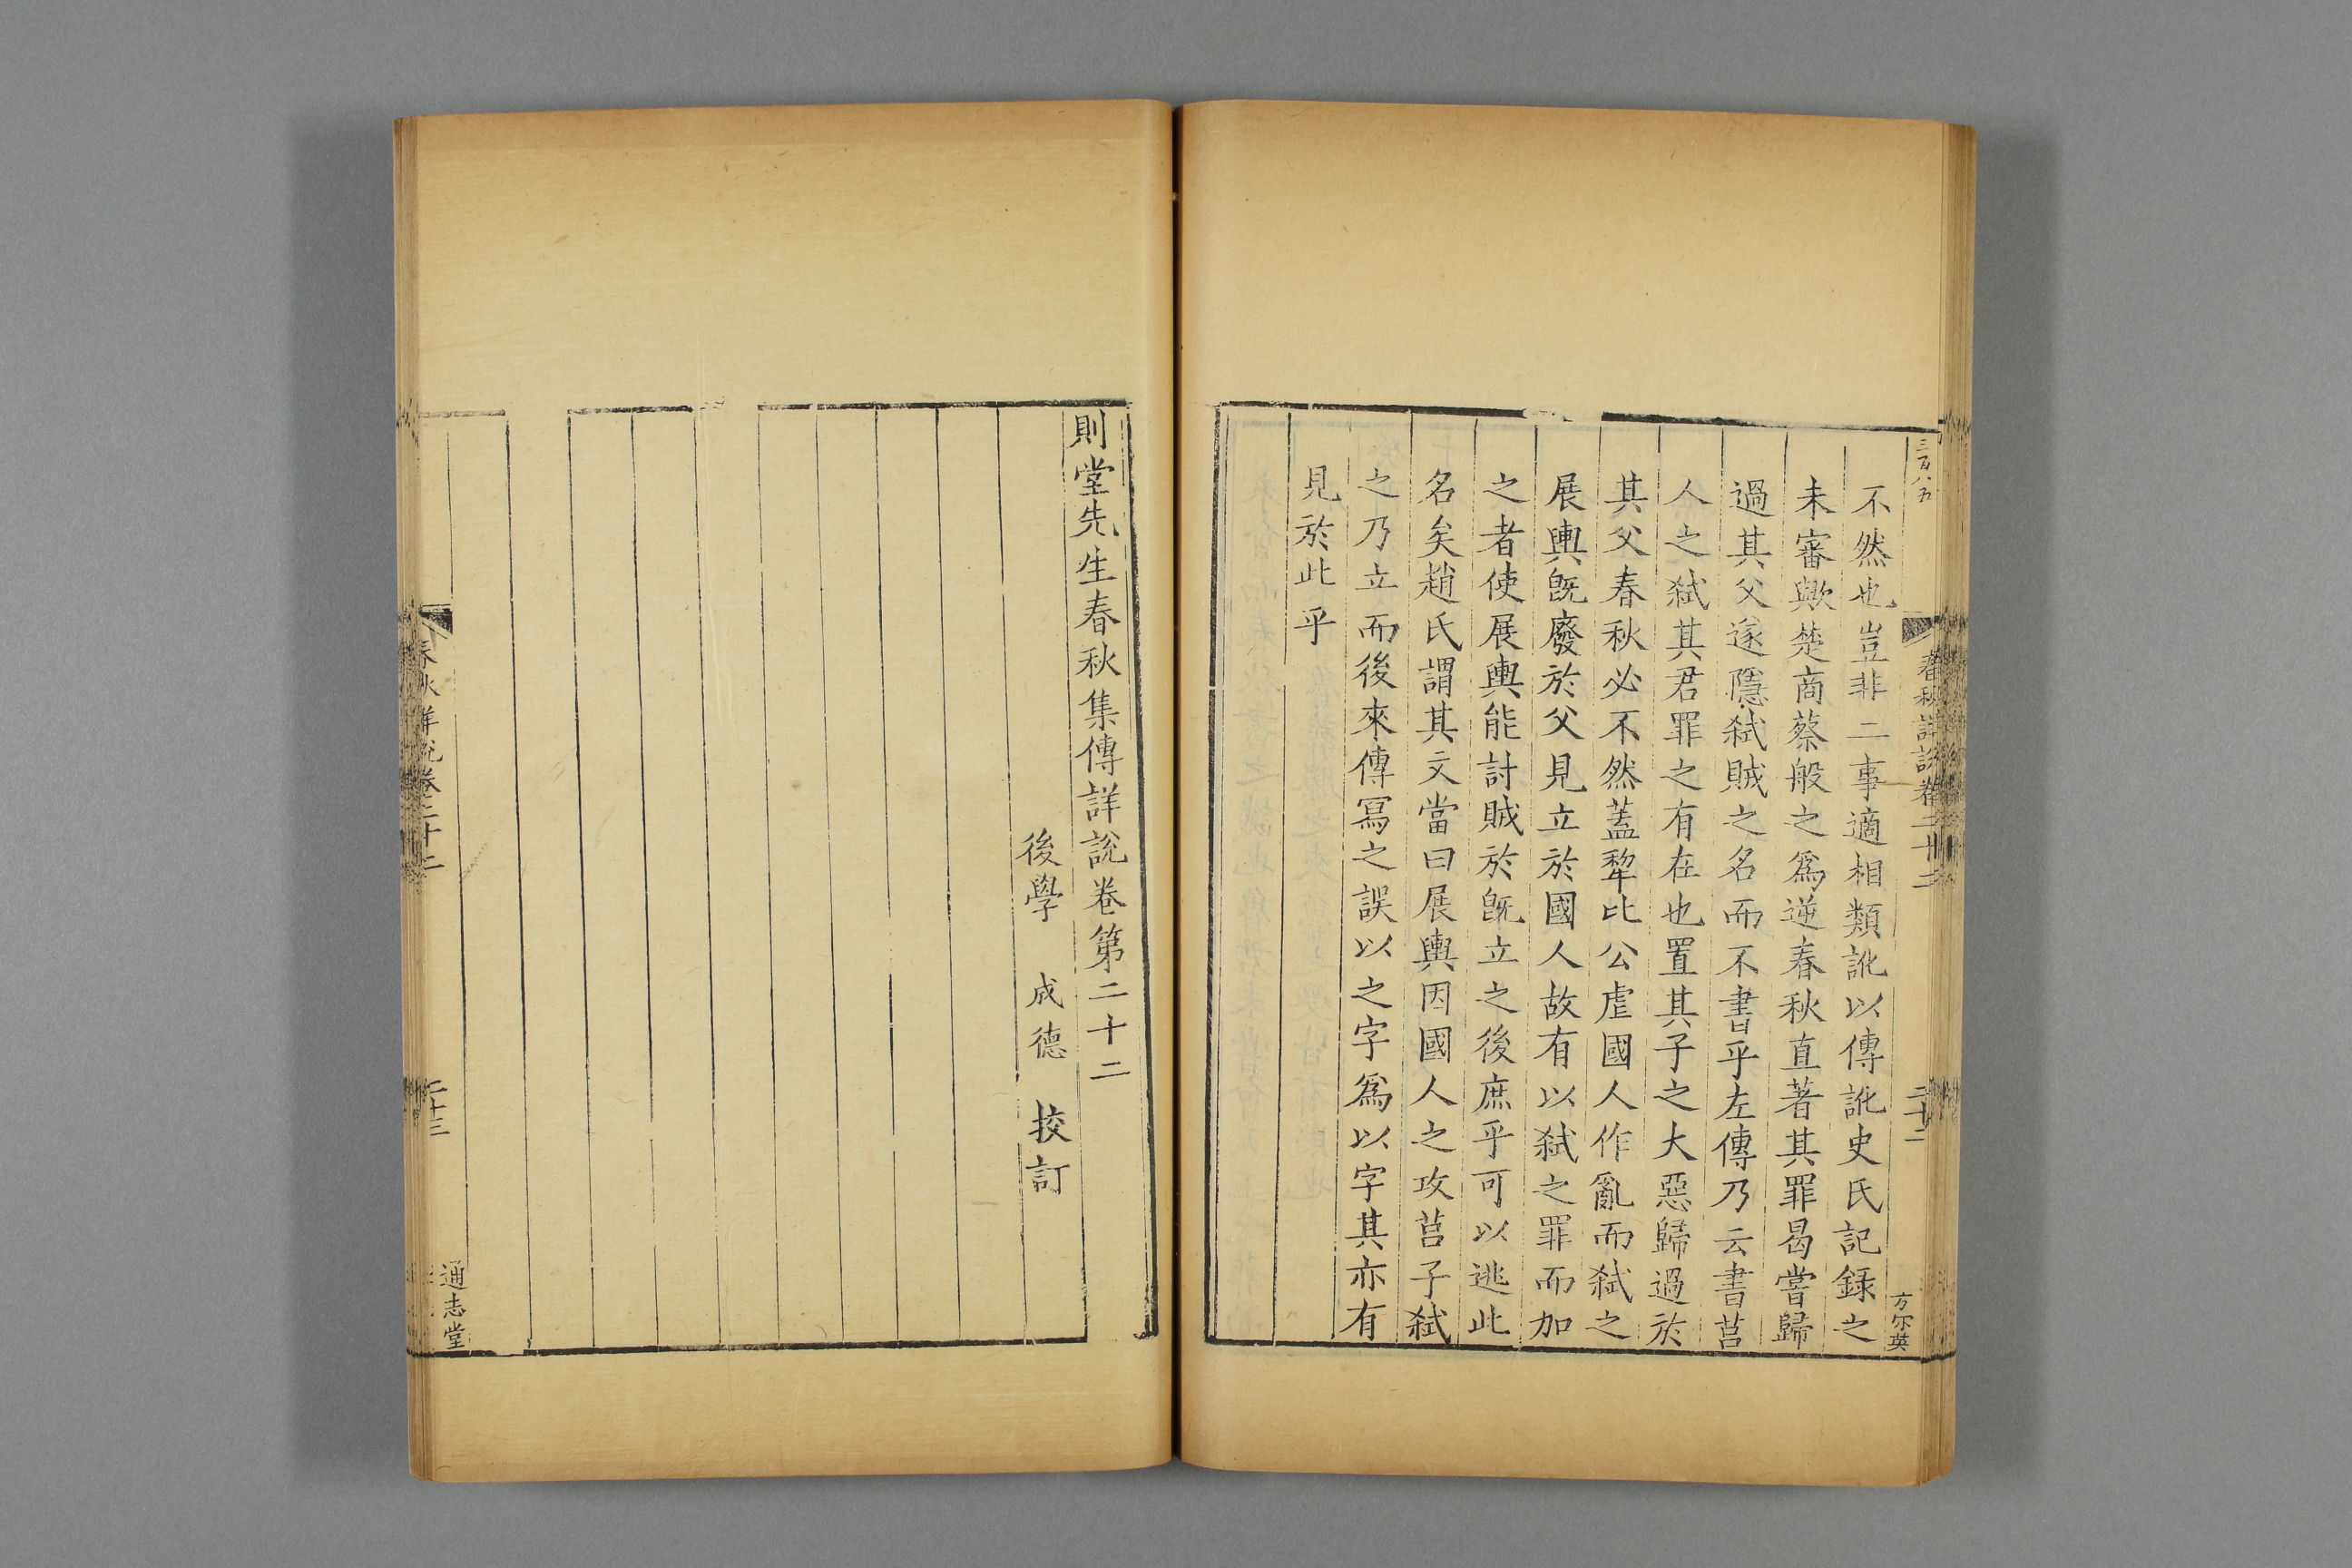 三百八五
春秋詳說卷二十二
二十二
方尔英
不然也豈非二事適相類訛以傳訛史氏記錄之
未審歟楚商蔡般之爲逆春秋直著其罪曷嘗歸
過其父遂隱弑賊之名而不書乎左傳乃云書莒
人之弑其君罪之有在也置其子之大惡歸過於
其父春秋必不然蓋犂比公虐國人作亂而弑之
展輿旣廢於父見立於國人故有以弑之罪而加
之者使展輿能討賊於旣立之後庶乎可以逃此
名矣趙氏謂其文當曰展輿因國人之攻莒子弑
之乃立而後來傳寫之誤以之字爲以字其亦有
見於此乎
則堂先生春秋集傳詳說卷第二十二
後學 成德 挍訂
春秋詳說卷二十二
二十三
通志堂